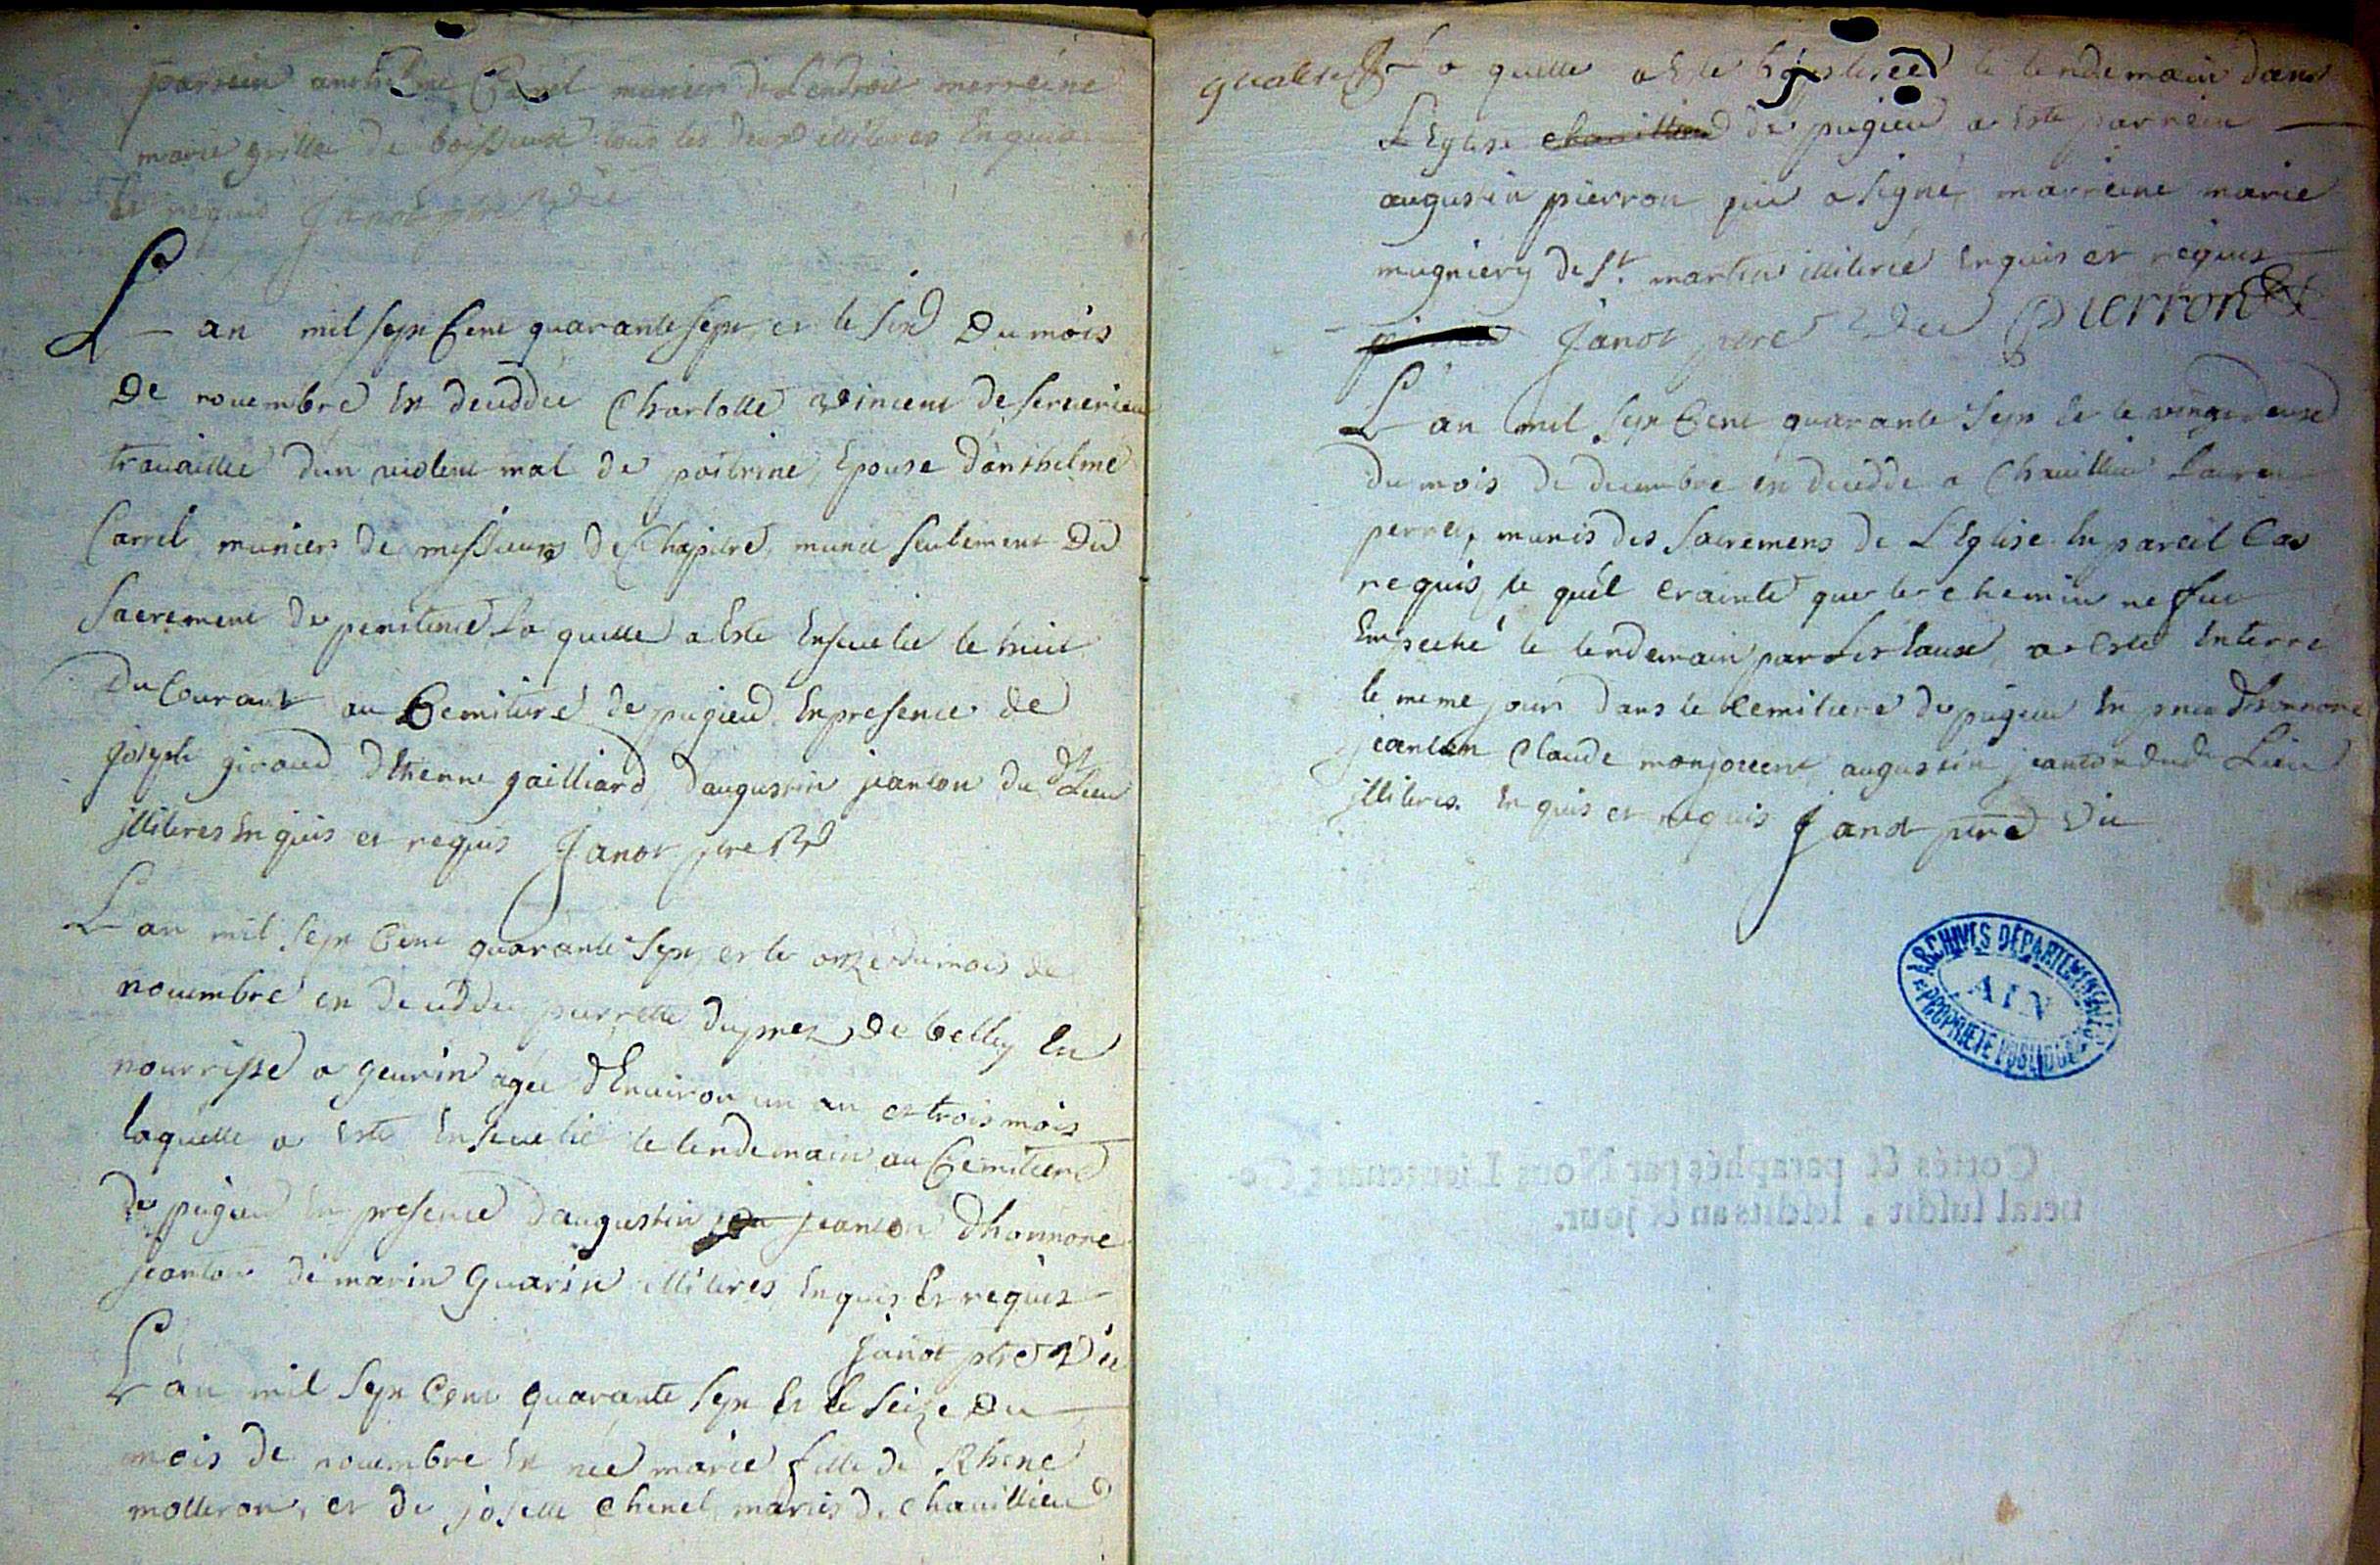 parrein anthelme Carrel munier de Lendroit marreine
marie grilliet de boissieux tous les deux illiteres Enquis
Et requis Janot ptre
L'an mil sept Cent quarante sept et le six Du mois
De novembre Est deceddée Charlotte vincent de serverieu
travaillée d'un violent mal de poitrine, Epouse d'anthelme
Carrel munier de messieurs de Chapitre, munie seulement Du
Sacrement de penitence, La quelle a Esté Ensevelie le huit
Du Courant au Cemitiere de pugieu En presence de
joseph giroud D'Etienne gailliard, d'augustin jeanton du dt Lieu
illiteres En quis et requis Janot ptre
L'an mil sept Cent quarante sept et le onze du mois de
novembre est deceddée pierrette dupres De belley En
nourrisse a geurin agée d'Environ un an et trois mois
laquelle a Esté Ensevelie le lendemain au Cemitiere
de pugieu En presence d'augustin jeanton D'honnoré
jeanton de marin Guarin illiteres Enquis Et requis
Janot ptre Vic
L'an mil sept Cent quarante sept Et le seize Du
mois de novembre Est née marie fille de Rhene
molleron, et de joselle Chenel mariés de Chavillieu
la quelle a Esté baptisée le lendemain dans
L'Eglise de pugieu a Esté parrein
augustin pierron qui a signé, marreine marie
mugniery de St. martin illiterée Enquis et requis
Janot ptre Vic pierron
L'an mil sept Cent quarante sept Et le vingt deux
Du mois de decembre est deceddé a Chavillieu Laurent
perret, munis des Sacremens de L'Eglise En pareil Cas
requis, le quel crainte que le chemin ne fut
Empeché le lendemain par les Eaux, a Esté Enterré
le meme jour dans le Cemitiere de pugieu En pnce D'honnoré
jeanton Claude monjouvent, augustin jeanton du dt Lieu
illiteres. Enquis et requis Janot ptre Vic
ARCHIVES DÉPARTEMENTALES
AIN
PROPRIÉTÉ PUBLIQUE
Cottés & paraphés par Nous Lieutenant Ge-
neral susdit, lesdits an & jour.